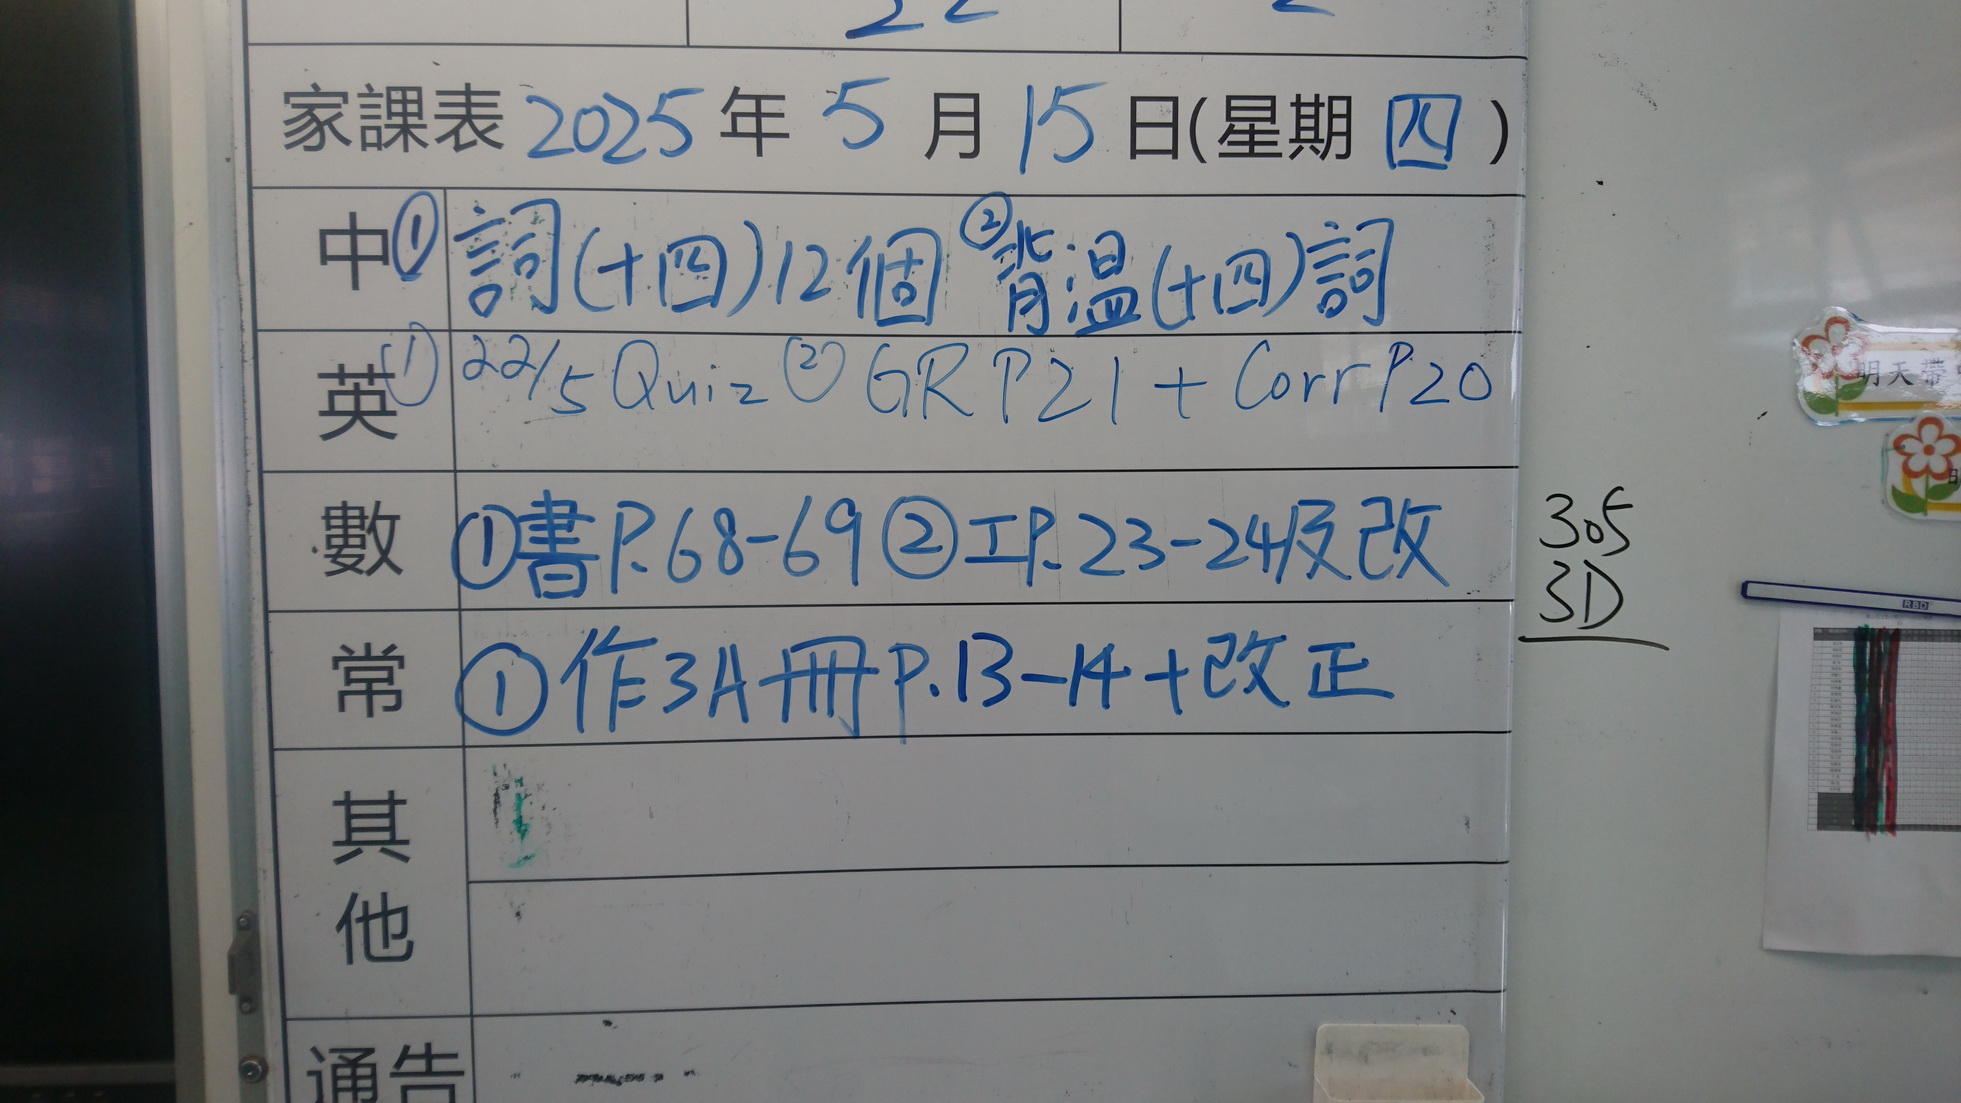 22 2
家課表 2025 年 5 月 15 日(星期 四 )
中 ① 詞(十四)12個 ② 背溫(十四)詞
英 ① 22/5 Quiz ② GR P21 + Corr P20
數 ① 書P.68-69 ② 工P.23-24及改
常 ① 作3A冊P.13-14+改正
其他
通告
305
3D
明天帶
RBD